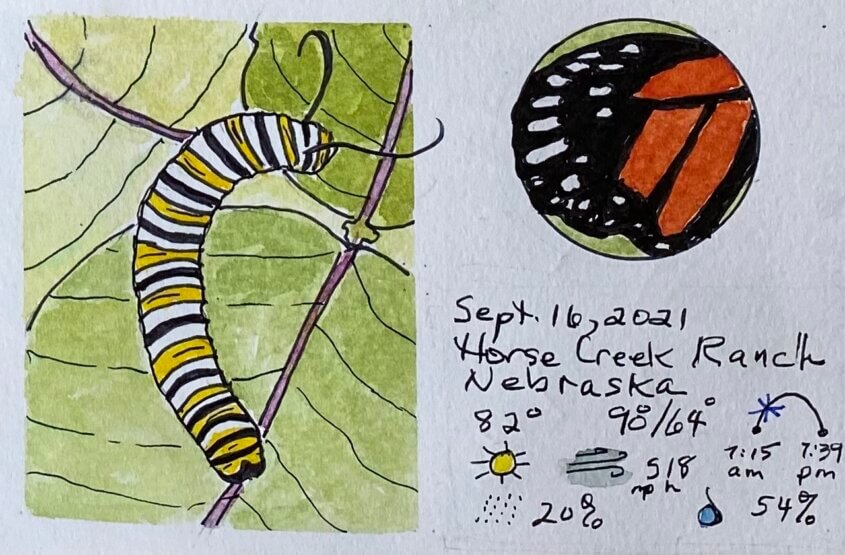 Sept. 16, 2021
Horse Creek Ranch
Nebraska
82° 90°/64°
S18 mph
7:15 am
7:39 pm
20% 54%